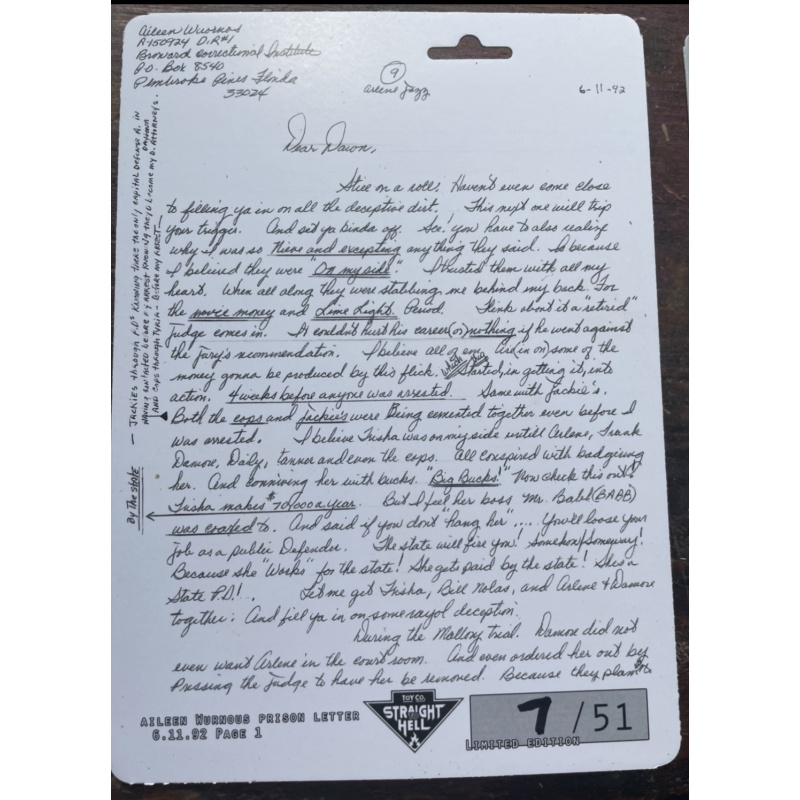 Aileen Wuornos
A-150924 D.R#1
Broward Correctional Institute
P.O. Box 8540
Pembroke Pines Florida
33024
9
Arlene Jazz
6-11-92
Dear Dawn,
Still on a roll. Haven't even come close
to filling ya in on all the deceptive dist. This next one will trip
your trigger. And set ya kinda off. See! you have to also realize
why I was so Nieve and excepting anything they said. Is because
I believed they were "On my side". I trusted them with all my
heart. When all along they were stabbing me behind my back for
the movie money and Lime Light. Period. Think about it a "retired"
Judge comes in. It couldn't hurt his career (or) nothing if he went against
the Jury's recommendation. I believe all of em. Are (in on) some of the
money gonna be produced by this flick. Which they Started, in getting it, into
action. 4 weeks before anyone was arrested. Same with Jackie's.
Both the cops and Jackie's were being cemented together even before I
was arrested. I believe Trisha was on my side untill Arlene, Frank
Damore, Daily, Tanner and even the cops. All conspired with badgiving
her. And conniving her with bucks. "Big Bucks!" Now check this out!
Trisha makes $70,000 a year. But I feel her boss Mr. Babb (BABB)
was coaxed to. And said if you don't "hang her".... You'll loose your
job as a public Defender. The state will fire you! Somehow/Someway!
Because she "Works" for the state! She gets paid by the state! She's a
State P.D!. Let me get Trisha, Bill Nolas, and Arlene & Damore
together. And fill ya in on some royal deception.
During the Mallory trial. Damore did not
even want Arlene in the court room. And even ordered her out by
Pressing the Judge to have her be removed. Because they plan
By The State
— JACKIES through P.D's Knowing theres the only capital Defense A. in
DAYTONA
HAVING contacted before my ARREST Knowing they'd become my D. Attorney's.
AND cops through TYRIA - Before my ARREST—
AILEEN WURNOUS PRISON LETTER
6.11.92 PAGE 1
TOY CO.
STRAIGHT
TO
HELL
7/51
LIMITED EDITION